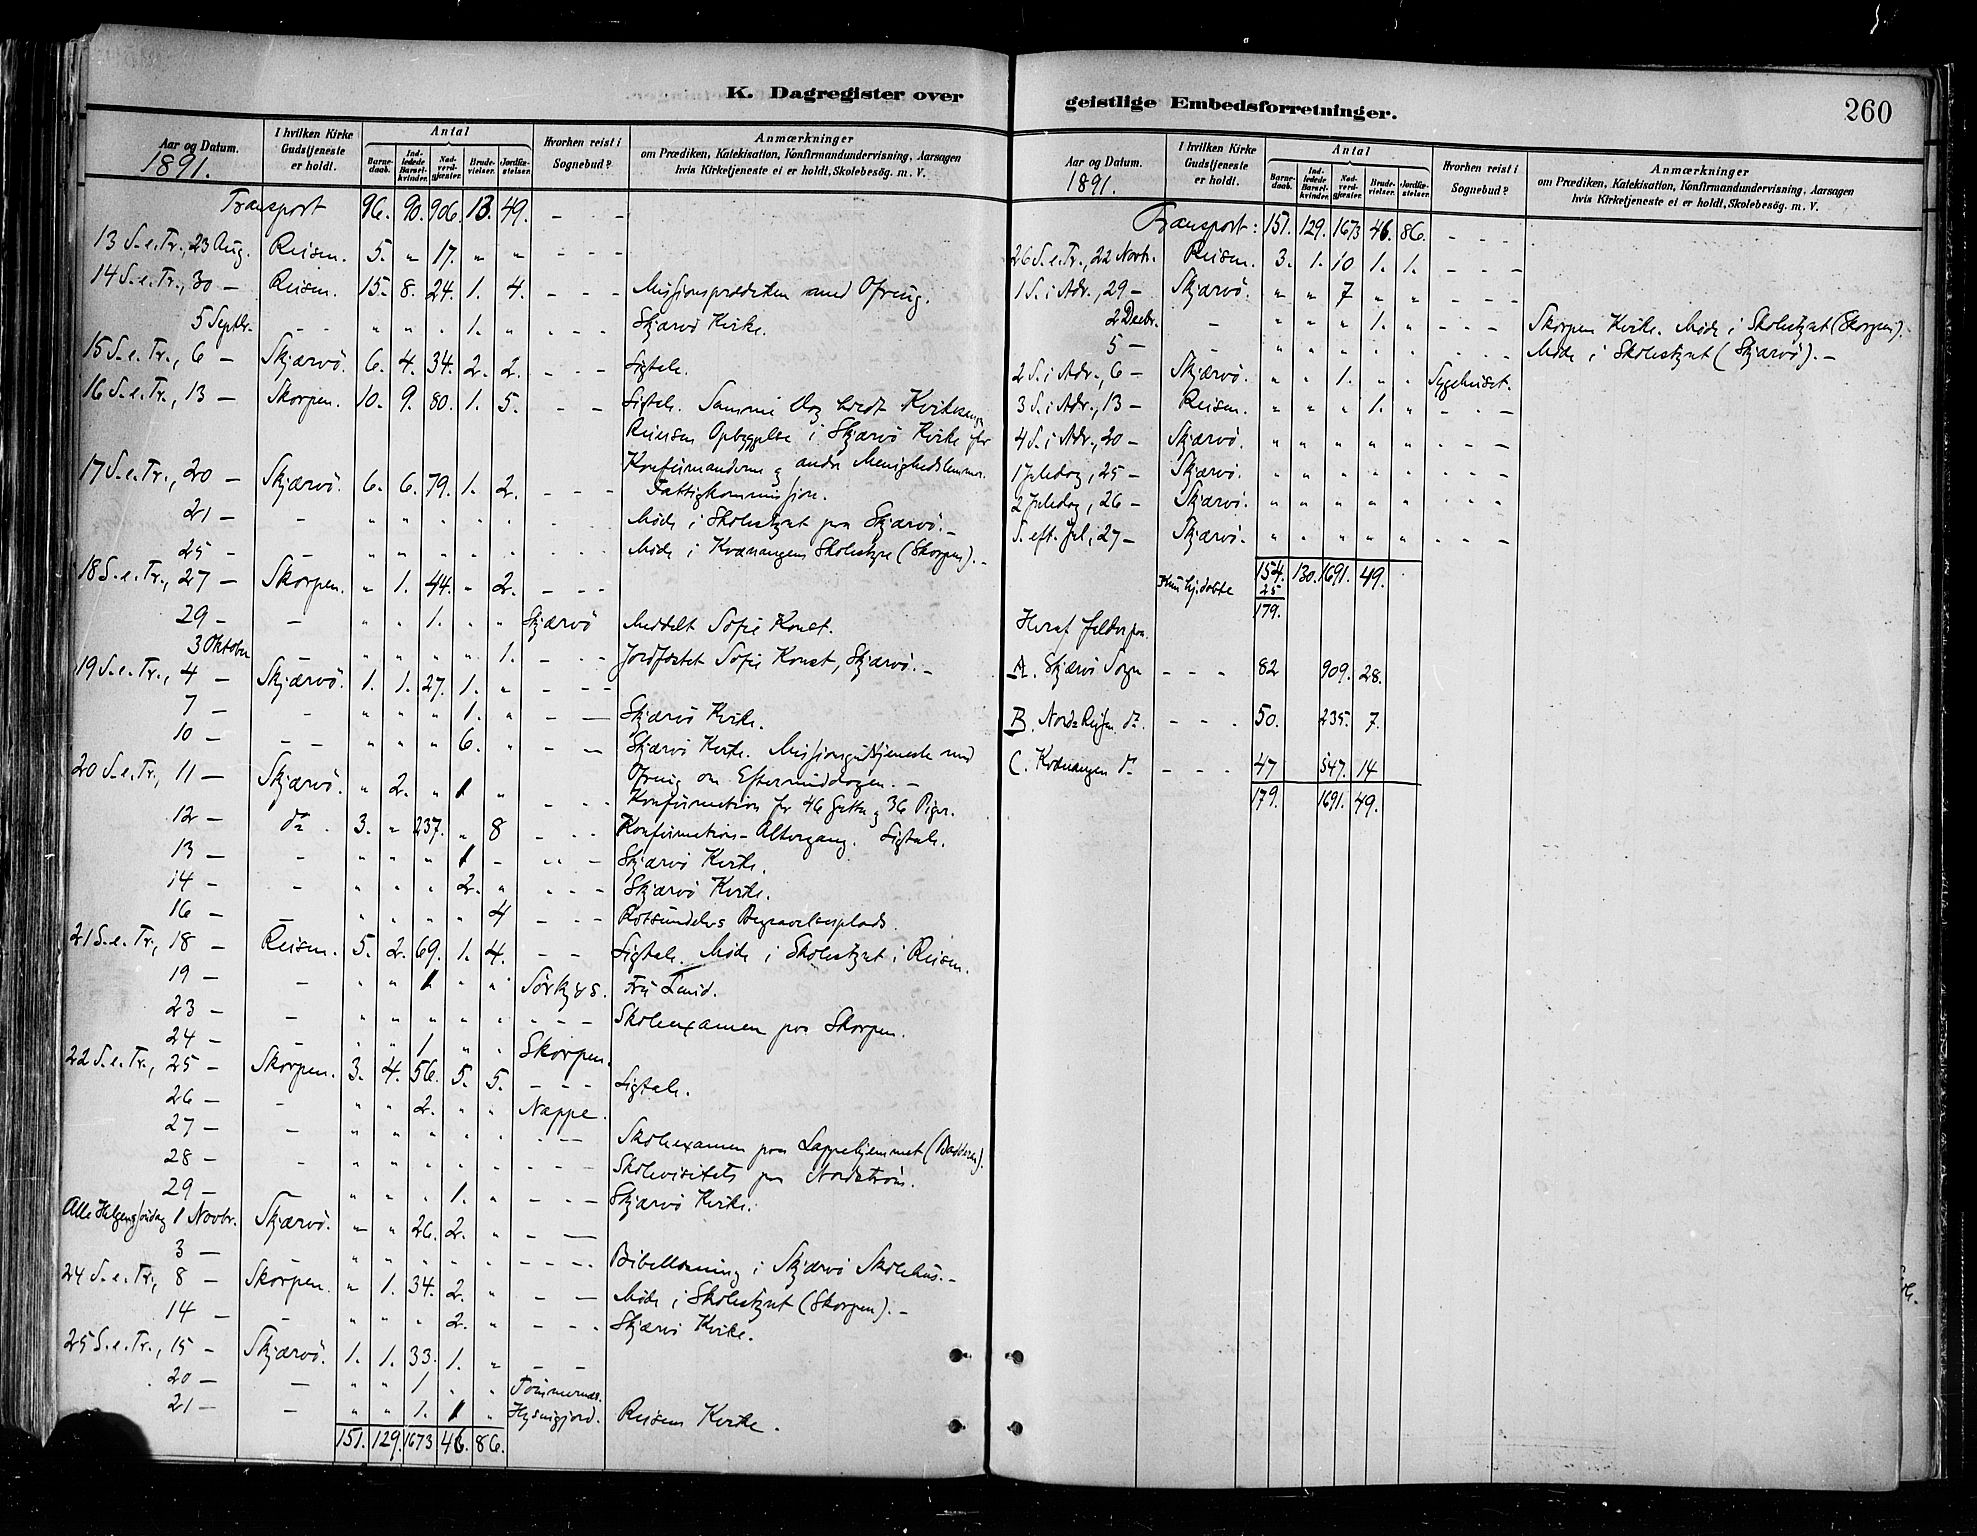 K. Dagregister over
Aar og Datum. 1891.
I hvilken Kirke Gudstjeneste er holdt.
Antal
Barnedaab. Indledede Barselkvinder. Nadverdgjæster. Brudevielser. Jordfæstelser.
Hvorhen reist i Sognebud?
Anmærkninger
om Prædiken, Katekisation, Konfirmandundervisning, Aarsagen hvis Kirketjeneste ei er holdt, Skolebesøg. m. V.
Transport 96. 90. 906. 13. 49. - - -
13 S. e. Tr., 23 Aug. Reisen. 5. " 17. " " - - -
14 S. e. Tr., 30 - Reisen. 15. 8. 24. 1. 4. - - - Missionsprædiken med Ofring.
5 Septbr. - - " " " 1. " - - - Skjærvö Kirke.
15 S. e. Tr., 6 - Skjærvö. 6. 4. 34. 2. 2. - - - Ligtale.
16 S. e. Tr., 13 - Skorpen. 10. 9. 80. 1. 5. - - Ligtale. Samme Dag holdt Kirkesanger
Reiersen Opbyggelse i Skjærvö Kirke for
Konfirmanderne og andre Menighedslemmer.
17 S. e. Tr., 20 - Skjærvö. 6. 6. 79. 1. 2. - - - Fattigkommission.
21 - - " " " " " - - - Möde i Skolestyret paa Skjærvö. -
25 - - " " " " " - - - Möde i Kvænangens Skolestyre (Skorpen). -
18 S. e. Tr., 27 - Skorpen. " 1. 44. " 2. - - -
29 - - " " 1. " " Skjærvö Meddelt Sofie Konst.
3 Oktober - " " " " 1. - - - Jordfæstet Sofie Konst, Skjærvö. -
19 S. e. Tr., 4 - Skjærvö. 1. 1. 27. 1. " - - -
7 - - " " " 1. " - - Skjærvö Kirke.
10 - - - " " " 6. " - - Skjærvö Kirke. Missionsgudstjeneste med
Ofring om Eftermiddagen. -
20 S. e. Tr., 11 - Skjærvö. " 2. " 1 " - - - Konfirmation for 46 Gutter og 36 Piger.
12 - do. 3. " 237. " 8 - - - Konfirmations-Altergang. Ligtale.
13 - - " " " 1 - - - - Skjærvö Kirke.
14 - - " " " 2. " - - - Skjærvö Kirke.
16 - - " " " " 4 - - - Rotsundelvs Begravelsesplads.
21 S. e. Tr., 18 - Reisen. 5. 2. 69. 1. 4. - - Ligtale. Möde i Skolestyret i Reisen.
19 - - " " 1 " " Sörkjos. Fru Lund.
23 - - " " " " " - - - Skoleexamen paa Skorpen.
24 - - " " 1 " " Skorpen.
22 S. e. Tr., 25 - Skorpen. 3. 4. 56. 5. 5. - - - Ligtale.
26 - - " " 2. " " Næppe.
27 - - " " " " " - - - Skoleexamen paa Lappehjemmet (Badderen).
28 - - " " " " " - - - Skolevisitets paa Nordström.
29 - - " " " 1. " - - - Skjærvö Kirke.
Alle Helgens söndag 1 Novbr. Skjærvö. " " 26. 2. " - -
3 - " " " " " - - - Bibellæsning i Skjærvö Skolehus. -
24 S. e. Tr., 8 - Skorpen. " 1. 34. 2. " - - Möde i Skolestyret (Skorpen). -
14 - - " " " 2. " - - - Skjærvö Kirke.
25 S. e. Tr., 15 - Skjærvö. 1. 1. 33. 1. " - -
20 - - " " 1 " " Tömmernæs.
21 - - " " 1. 1 " Reisens Kirke.
151. 129. 1673 46. 86.
geistlige Embedsforretninger.
260
Aar og Datum. 1891.
I hvilken Kirke Gudstjeneste er holdt.
Antal
Barnedaab. Indledede Barselkvinder. Nadverdgjæster. Brudevielser. Jordfæstelser.
Hvorhen reist i Sognebud?
Anmærkninger
om Prædiken, Katekisation, Konfirmandundervisning, Aarsagen hvis Kirketjeneste ei er holdt, Skolebesøg. m. V.
Transport: 151. 129. 1673 46. 86. - - -
26 S. e. Tr., 22 Novbr. Reisen. 3. 1. 10 1. 1. - - -
1 S. i Adv., 29 - Skjærvö. " " 7 " " - - -
2 Decbr. - " " " 1. " - - - Skorpen Kirke. Möde i Skolestyret (Skorpen).
5 - - " " " " " - - - Möde i Skolestyret (Skjærvö). -
2 S. i Adv., 6 - Skjærvö. " " 1. " " Sygehuset.
3 S. i Adv., 13 - Reisen. " " " 1. " - - -
4 S. i Adv., 20 - Skjærvö. " " " " " - - -
1 Juledag, 25 - Skjærvö. " " " " " - - -
2 Juledag, 26 - Skjærvö. " " " " " - - -
S. eft. Jul, 27 - Skjærvö. " " " " " - - -
154. 130. 1691. 49.
Kun hj.döbte 25
179.
Heraf falder paa
A. Skjærvö Sogn - - - 82 909. 28.
B. Nordre Reisen do. - - - 50. 235. 7.
C. Kvænangen do. - - - 47 547. 14
179. 1691. 49.